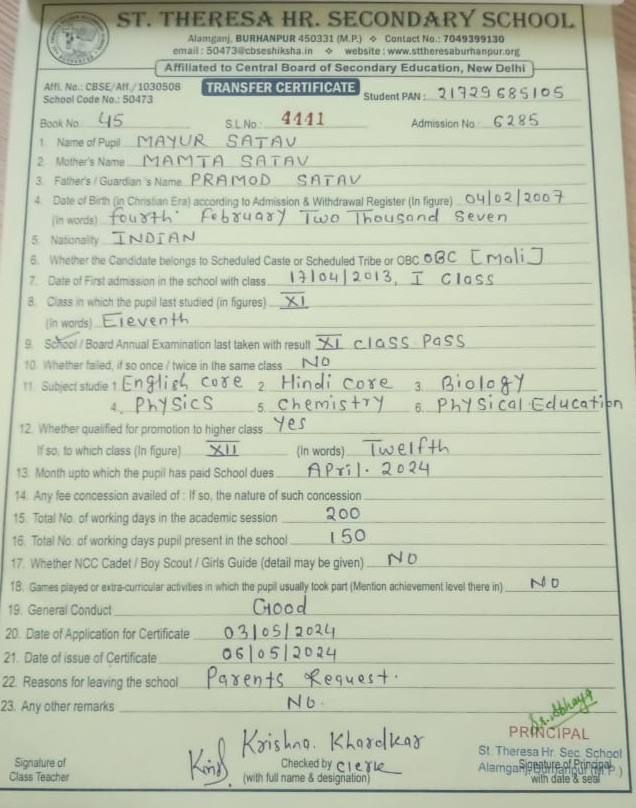 ST. THERESA HR. SECONDARY SCHOOL
Alamganj, BURHANPUR 450331 (M.P.) ❖ Contact No.: 7049399130
email : 50473@cbseshiksha.in ❖ website : www.sttheresaburhanpur.org
Affiliated to Central Board of Secondary Education, New Delhi
Affi. No.: CBSE/Aff./1030506 TRANSFER CERTIFICATE Student PAN : 21729685105
School Code No.: 50473
Book No. 45 S.L.No. 4441 Admission No. 6285
1. Name of Pupil MAYUR SATAV
2. Mother's Name MAMTA SATAV
3. Father's / Guardian 's Name PRAMOD SATAV
4. Date of Birth (in Christian Era) according to Admission & Withdrawal Register (In figure) 04/02/2007
(in words) fourth February Two Thousand Seven
5. Nationality INDIAN
6. Whether the Candidate belongs to Scheduled Caste or Scheduled Tribe or OBC OBC [Mali]
7. Date of First admission in the school with class 17/04/2013, I Class
8. Class in which the pupil last studied (in figures) XI
(in words) Eleventh
9. School / Board Annual Examination last taken with result XI class Pass
10. Whether failed, if so once / twice in the same class NO
11. Subject studie 1. English core 2. Hindi core 3. Biology
4. Physics 5. Chemistry 6. Physical Education
12. Whether qualified for promotion to higher class Yes
If so, to which class (In figure) XII (In words) Twelfth
13. Month upto which the pupil has paid School dues April. 2024
14. Any fee concession availed of : If so, the nature of such concession
15. Total No. of working days in the academic session 200
16. Total No. of working days pupil present in the school 150
17. Whether NCC Cadet / Boy Scout / Girls Guide (detail may be given) NO
18. Games played or extra-curricular activities in which the pupil usually took part (Mention achievement level there in) NO
19. General Conduct Good
20. Date of Application for Certificate 03/05/2024
21. Date of issue of Certificate 06/05/2024
22. Reasons for leaving the school Parents Request.
23. Any other remarks No.
PRINCIPAL
Krishna. Khardkar
St. Theresa Hr. Sec. School
Signature of Checked by clerk Alamganj Burhanpur (M.P.) Signature of Principal
Class Teacher (with full name & designation) with date & seal